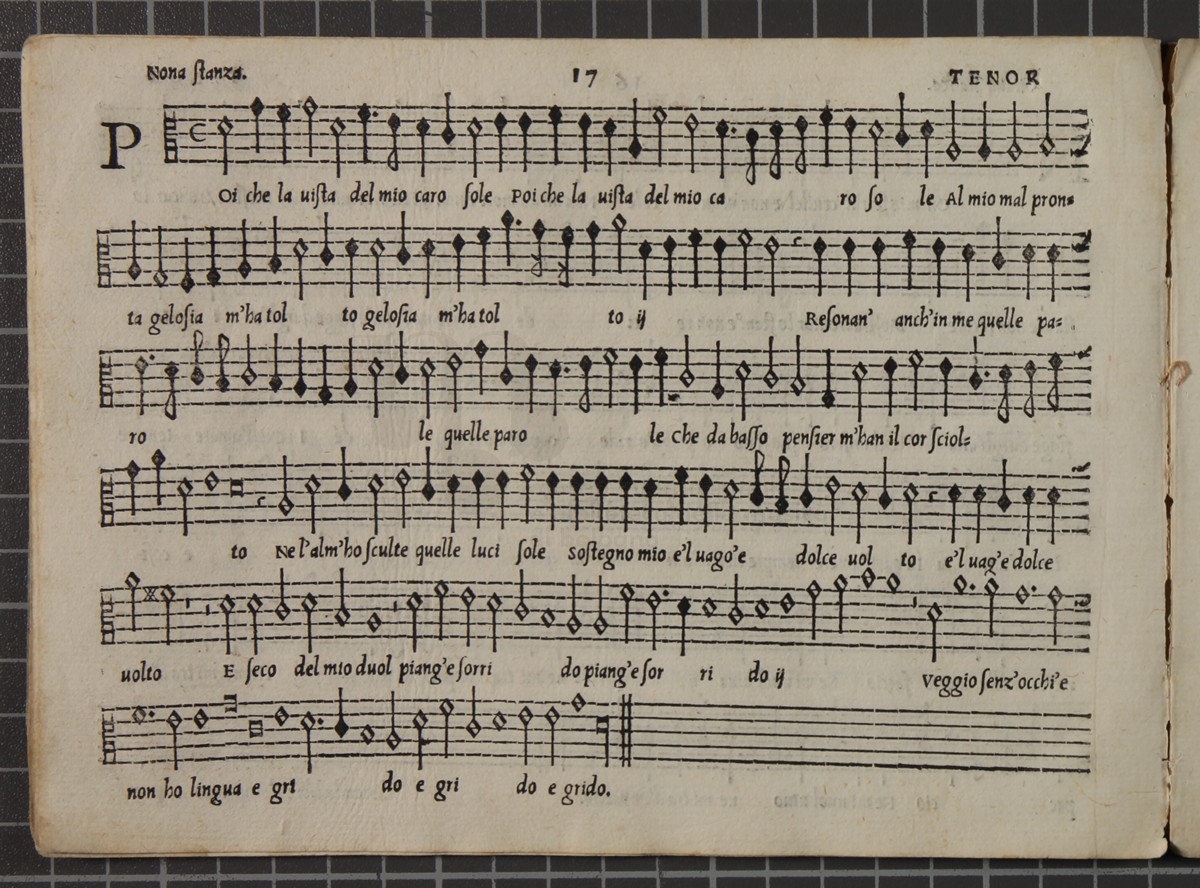 Nona ſtanza. 17 TENOR
P
Oi che la uiſta del mio caro ſole Poi che la uiſta del mio ca ro ſo le Al mio mal pron=
ta geloſia m'ha tol to geloſia m'ha tol to ij Reſonan' anch'in me quelle pa=
ro le quelle paro le che da baſſo penſier m'han il cor ſciol=
to Ne l'alm'ho ſculte quelle luci ſole ſoſtegno mio e'l uago'e dolce uol to e'l uag'e dolce
uolto E ſeco del mio duol piang'e ſorri do piang'e ſor ri do ij Veggio ſenz'occhi'e
non ho lingua e gri do e gri do e grido.